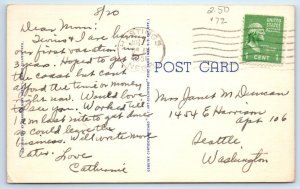 8/20
2 50
'72
Dear Mimi:
Terms & I are having
our first vacation in
3 years. Hoped to get to
the coast but cant
afford the time or money
right now. Would love
to see you. Worked till
1 am last nite to get done
so could leave the
business. Will write more
later. Love
Catherine
POST CARD
UNITED STATES POSTAGE
1 CENT
Mrs James M. Duncan
1454 E Harrison
apt 106
Seattle
Washington